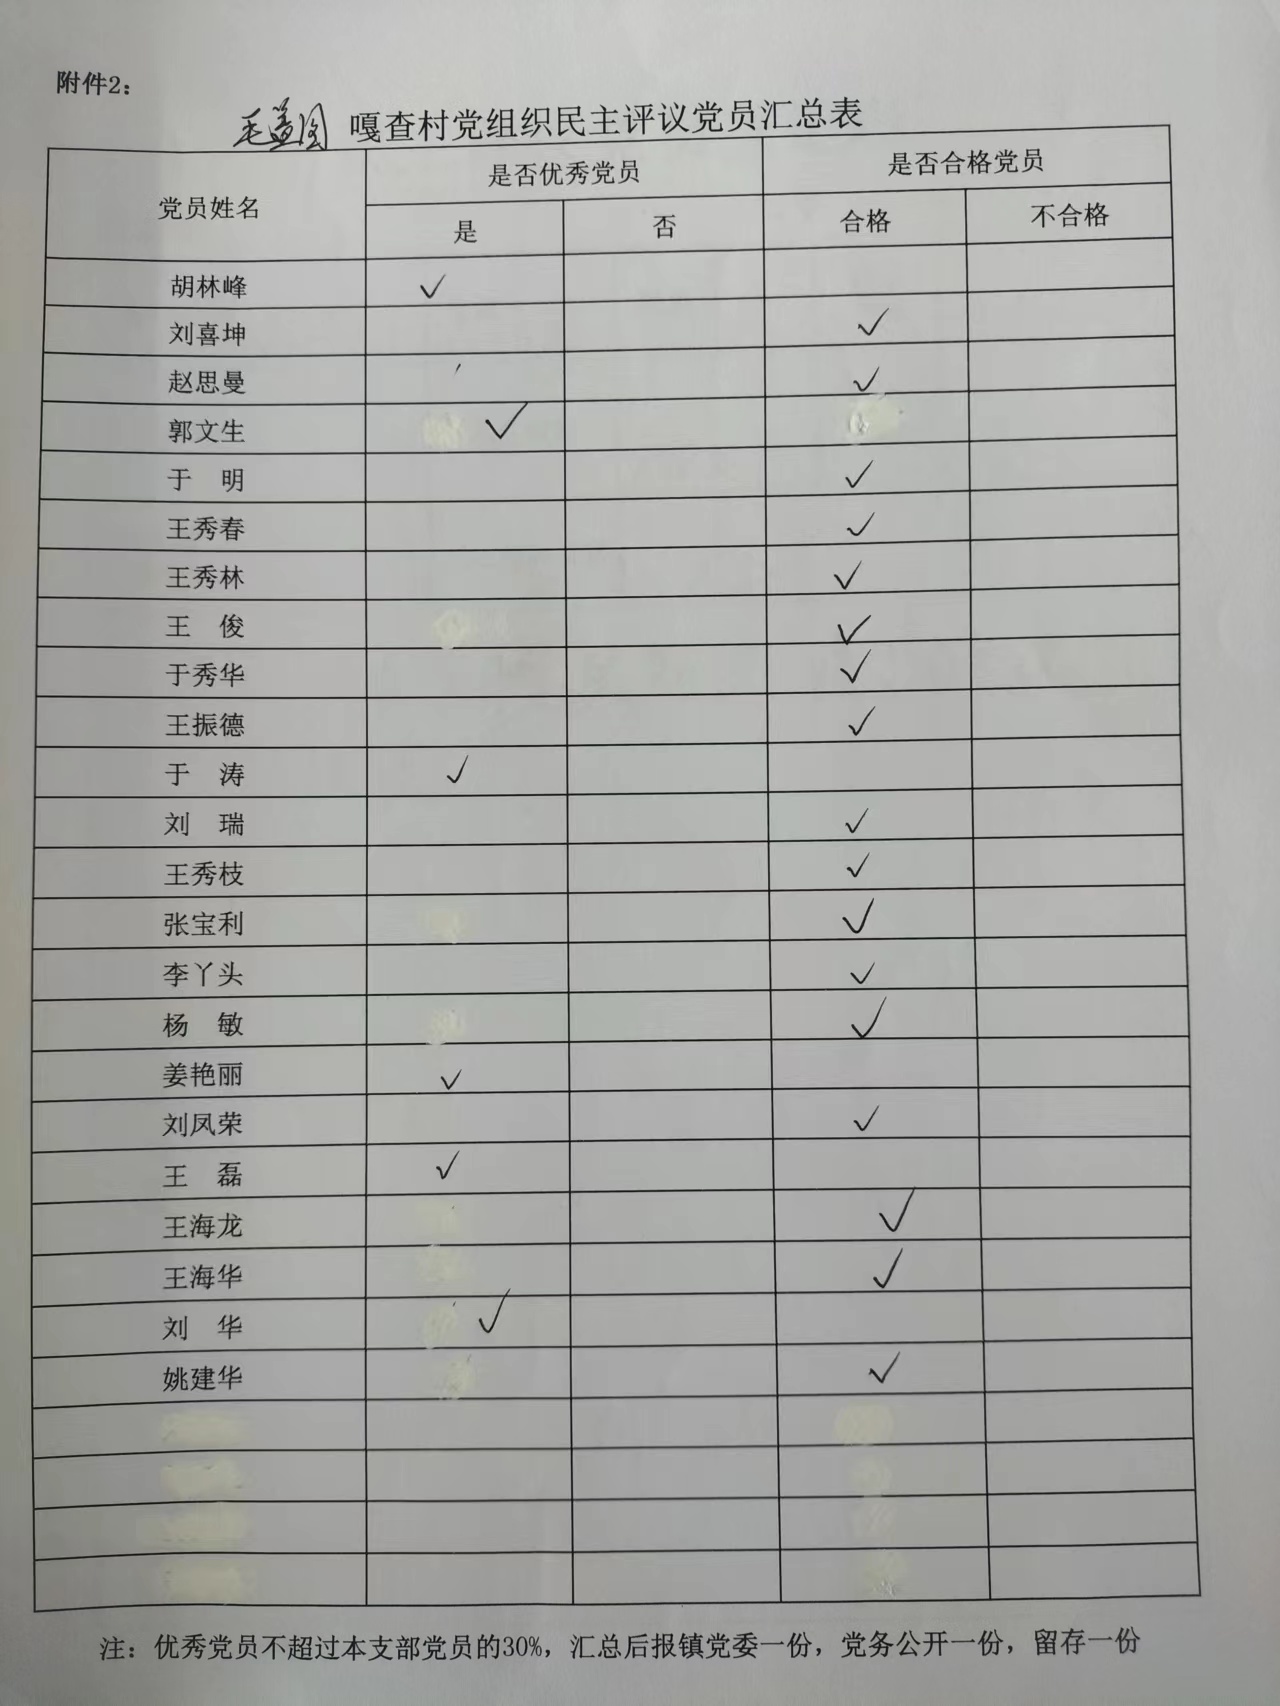 附件2：
毛盖图 嘎查村党组织民主评议党员汇总表
党员姓名 是否优秀党员 是否合格党员
是 否 合格 不合格
胡林峰 ✓
刘喜坤 ✓
赵思曼 ✓
郭文生 ✓
于 明 ✓
王秀春 ✓
王秀林 ✓
王 俊 ✓
于秀华 ✓
王振德 ✓
于 涛 ✓
刘 瑞 ✓
王秀枝 ✓
张宝利 ✓
李丫头 ✓
杨 敏 ✓
姜艳丽 ✓
刘凤荣 ✓
王 磊 ✓
王海龙 ✓
王海华 ✓
刘 华 ✓
姚建华 ✓
注：优秀党员不超过本支部党员的30%，汇总后报镇党委一份，党务公开一份，留存一份